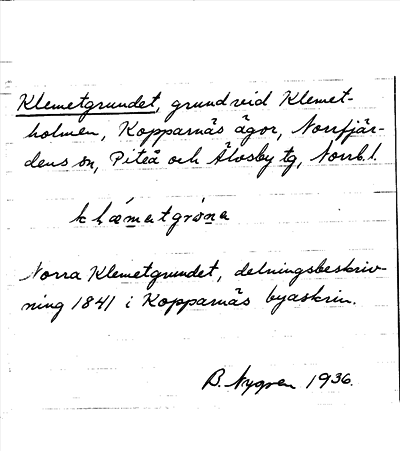 Klemetgrundet, grund vid Klemet-
holmen, Kopparnäs ägor, Norrfjär-
dens sn, Piteå och Älvsby tg, Norrb.l.
Norra Klemetgrundet, delningsbeskriv-
ning 1841 i Kopparnäs byaskrin.
B. Nygren 1936.